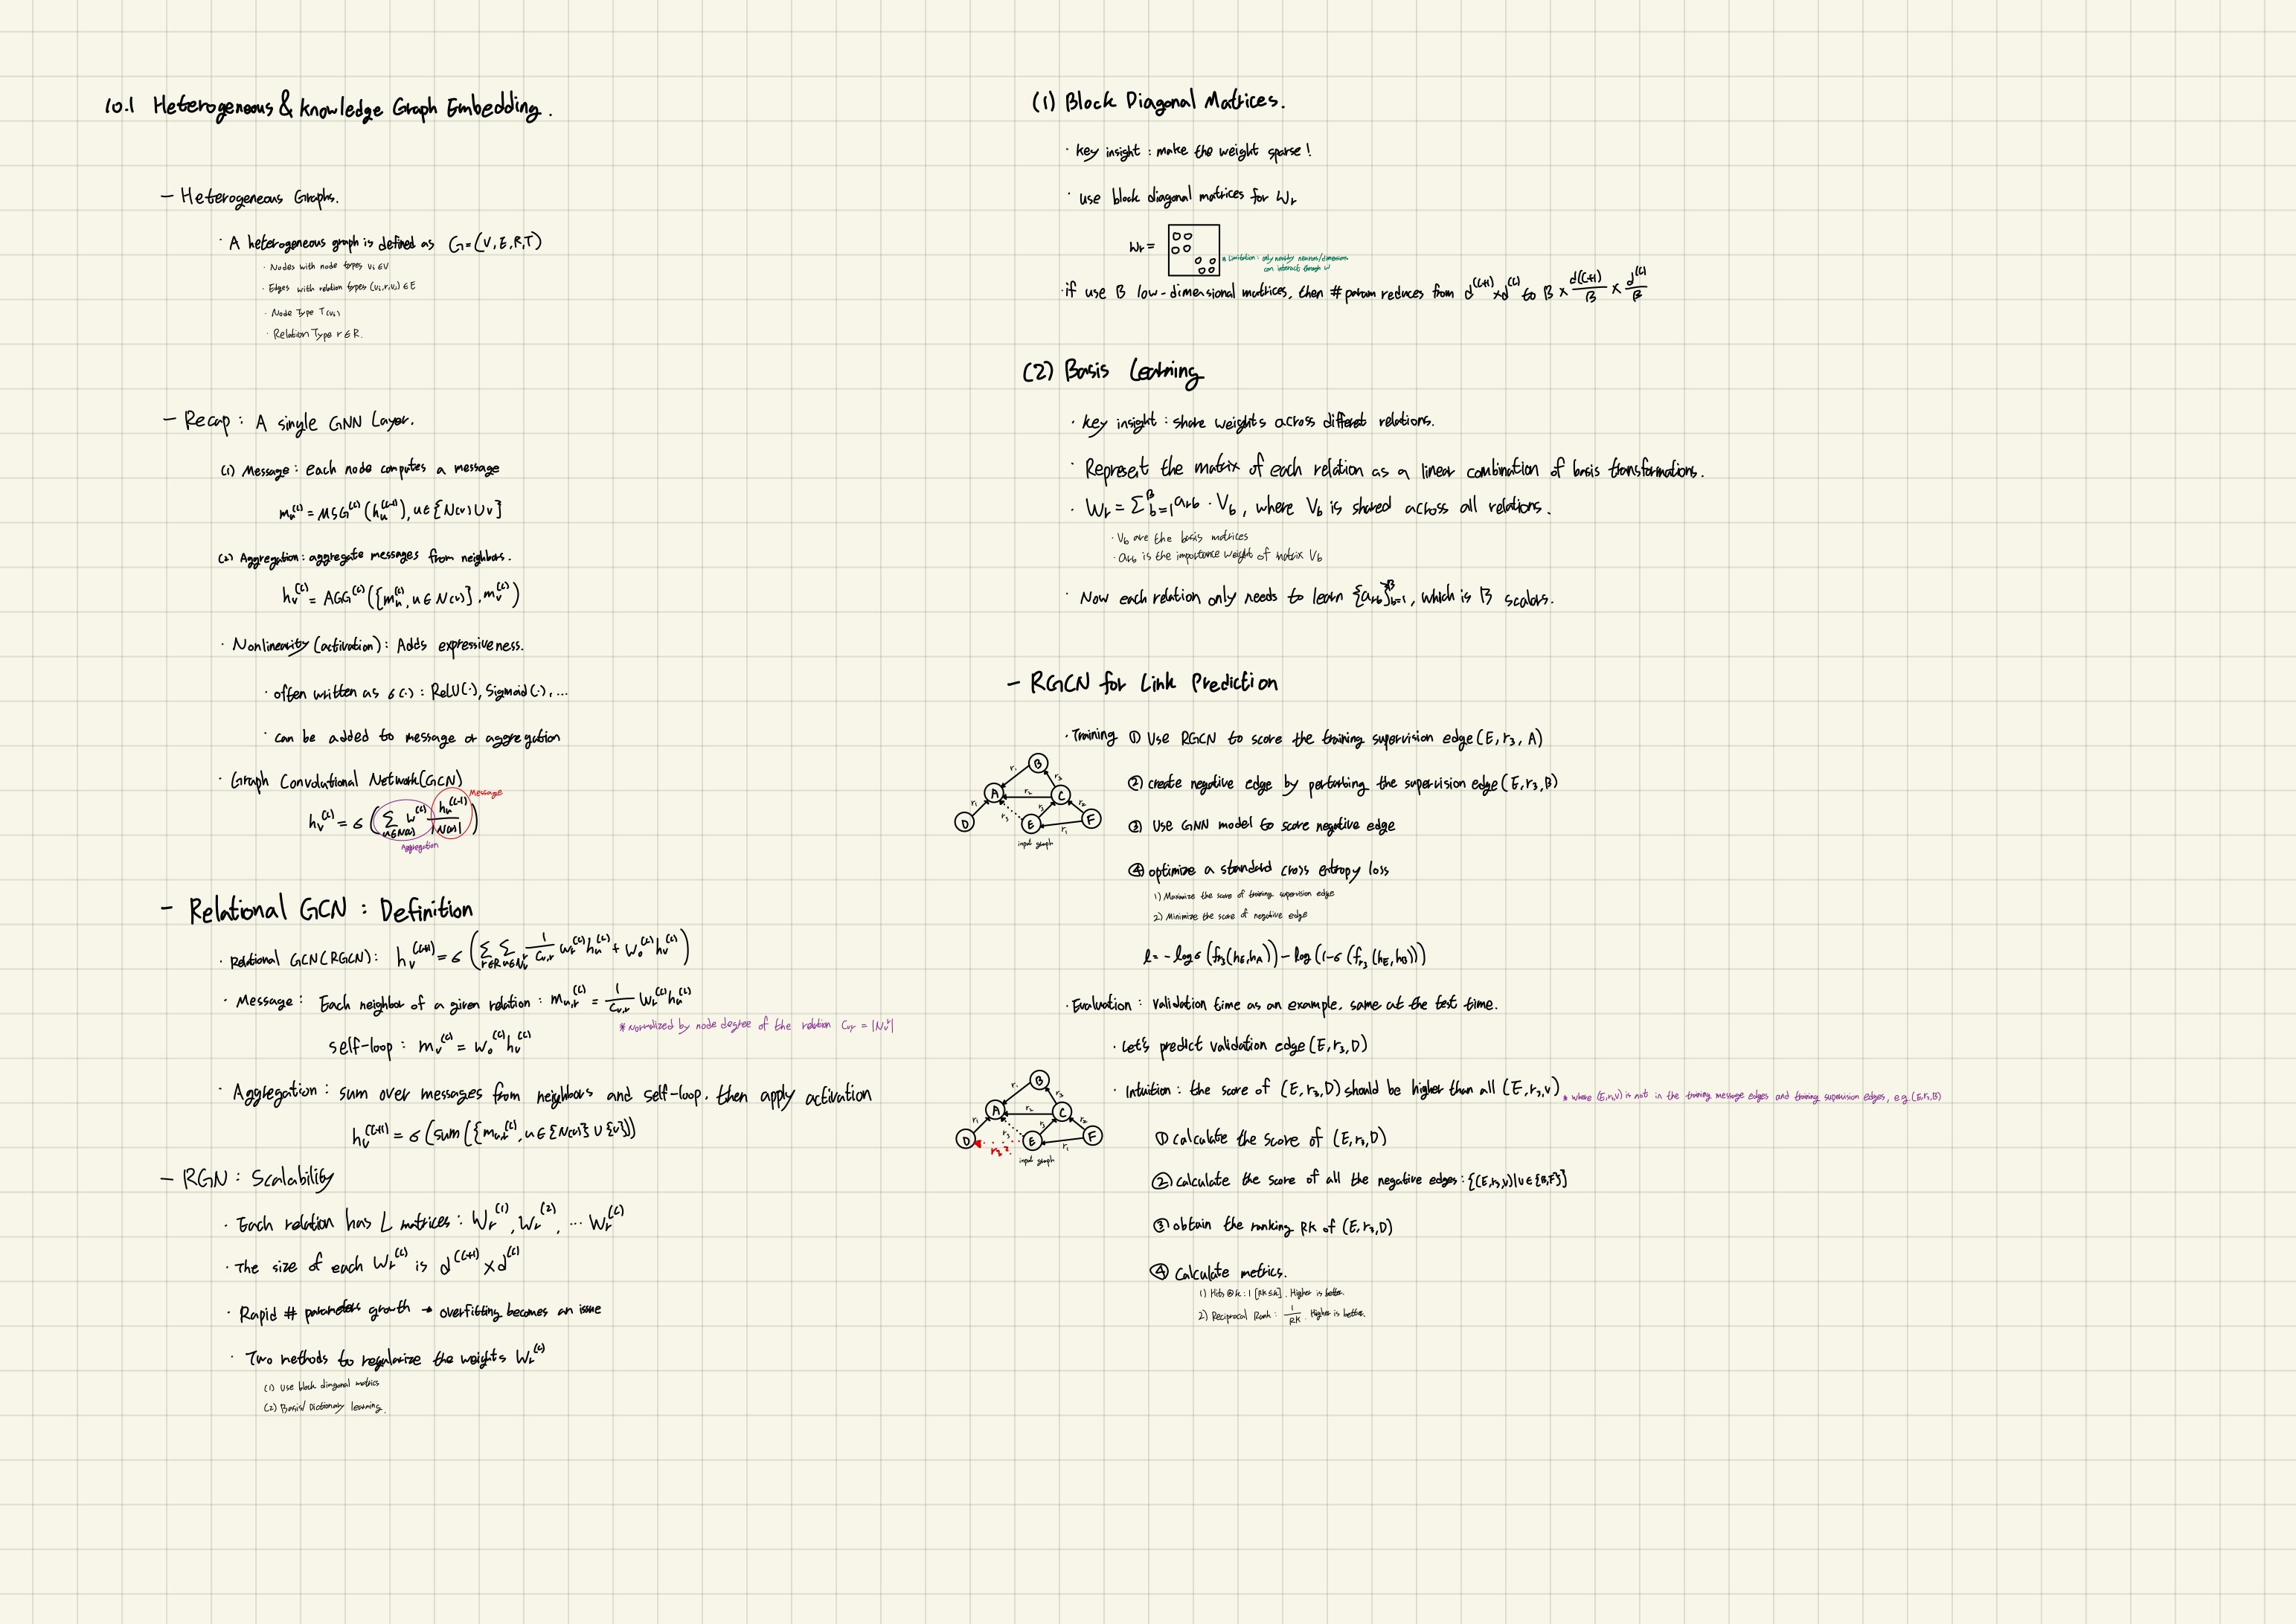 10.1 Heterogeneous & knowledge Graph Embedding.
- Heterogeneous Graphs.
· A heterogeneous graph is defined as G=(V,E,R,T)
· Nodes with node types vi∈V
· Edges with relation types (vi,r,vj)∈E
· Node Type T(vi)
· Relation Type r∈R.
- Recap: A single GNN Layer.
(1) Message: each node computes a message
m_u^(l) = MSG^(l)(h_u^(l-1)), u∈{N(v)∪v}
(2) Aggregation: aggregate messages from neighbors.
h_v^(l) = AGG^(l)({m_u^(l), u∈N(v)}, m_v^(l))
· Nonlinearity (activation): Adds expressiveness.
· often written as σ(·): ReLU(·), Sigmoid(·), ...
· can be added to message or aggregation
· Graph Convolutional Network(GCN)
Message
h_v^(l) = σ(Σ_{u∈N(v)} W^(l) h_u^(l-1)/|N(v)|)
Aggregation
- Relational GCN: Definition
· Relational GCN(RGCN): h_v^(l+1) = σ(Σ_{r∈R} Σ_{u∈N_v^r} 1/C_{v,r} W_r^(l) h_u^(l) + W_0^(l) h_v^(l))
· Message: Each neighbor of a given relation: m_{u,r}^(l) = 1/C_{v,r} W_r^(l) h_u^(l)
*Normalized by node degree of the relation C_{v,r} = |N_v^r|
self-loop: m_v^(l) = W_0^(l) h_v^(l)
· Aggregation: sum over messages from neighbors and self-loop, then apply activation
h_v^(l+1) = σ(Sum({m_{u,r}^(l), u∈{N(v)}∪{v}}))
- RGN: Scalability
· Each relation has L matrices: W_r^(1), W_r^(2), ... W_r^(L)
· The size of each W_r^(l) is d^(l+1) × d^(l)
· Rapid # parameters growth → overfitting becomes an issue
· Two methods to regularize the weights W_r^(l)
(1) Use block diagonal matrics
(2) Basis/Dictionary learning.
(1) Block Diagonal Matrices.
· key insight: make the weight sparse!
· use block diagonal matrices for W_r
W_r =
* Limitation: only nearby neurons/dimensions
can interact through W
· if use B low-dimensional matrices, then # param reduces from d^(l+1) × d^(l) to B × d^(l+1)/B × d^(l)/B
(2) Basis Learning
· key insight: share weights across different relations.
· Represent the matrix of each relation as a linear combination of basis transformations.
· W_r = Σ_{b=1}^B a_{rb} · V_b, where V_b is shared across all relations.
· V_b are the basis matrices
· a_{rb} is the importance weight of matrix V_b
· Now each relation only needs to learn {a_{rb}}_{b=1}^B, which is B scalars.
- RGCN for Link Prediction
· Training ① Use RGCN to score the training supervision edge (E, r3, A)
② create negative edge by perturbing the supervision edge (E, r3, B)
③ Use GNN model to score negative edge
④ optimize a standard cross entropy loss
1) Maximize the score of training supervision edge
2) Minimize the score of negative edge
B
A
C
D
E
F
input graph
ℓ = -log σ(f_r3(h_E, h_A)) - log(1-σ(f_r3(h_E, h_B)))
· Evaluation: Validation time as an example, same at the test time.
· Let's predict validation edge (E, r3, D)
· Intuition: the score of (E, r3, D) should be higher than all (E, r3, v)
* where (E,r3,v) is not in the training message edges and training supervision edges, e.g (E,r3,B)
B
A
C
D
E
F
r3?
input graph
① calculate the score of (E, r3, D)
② calculate the score of all the negative edges: {(E,r3,v)|v∈{B,F}}
③ obtain the ranking RK of (E, r3, D)
④ Calculate metrics.
1) Hits@k: 1[RK≤k]. Higher is better.
2) Reciprocal Rank: 1/RK. Higher is better.